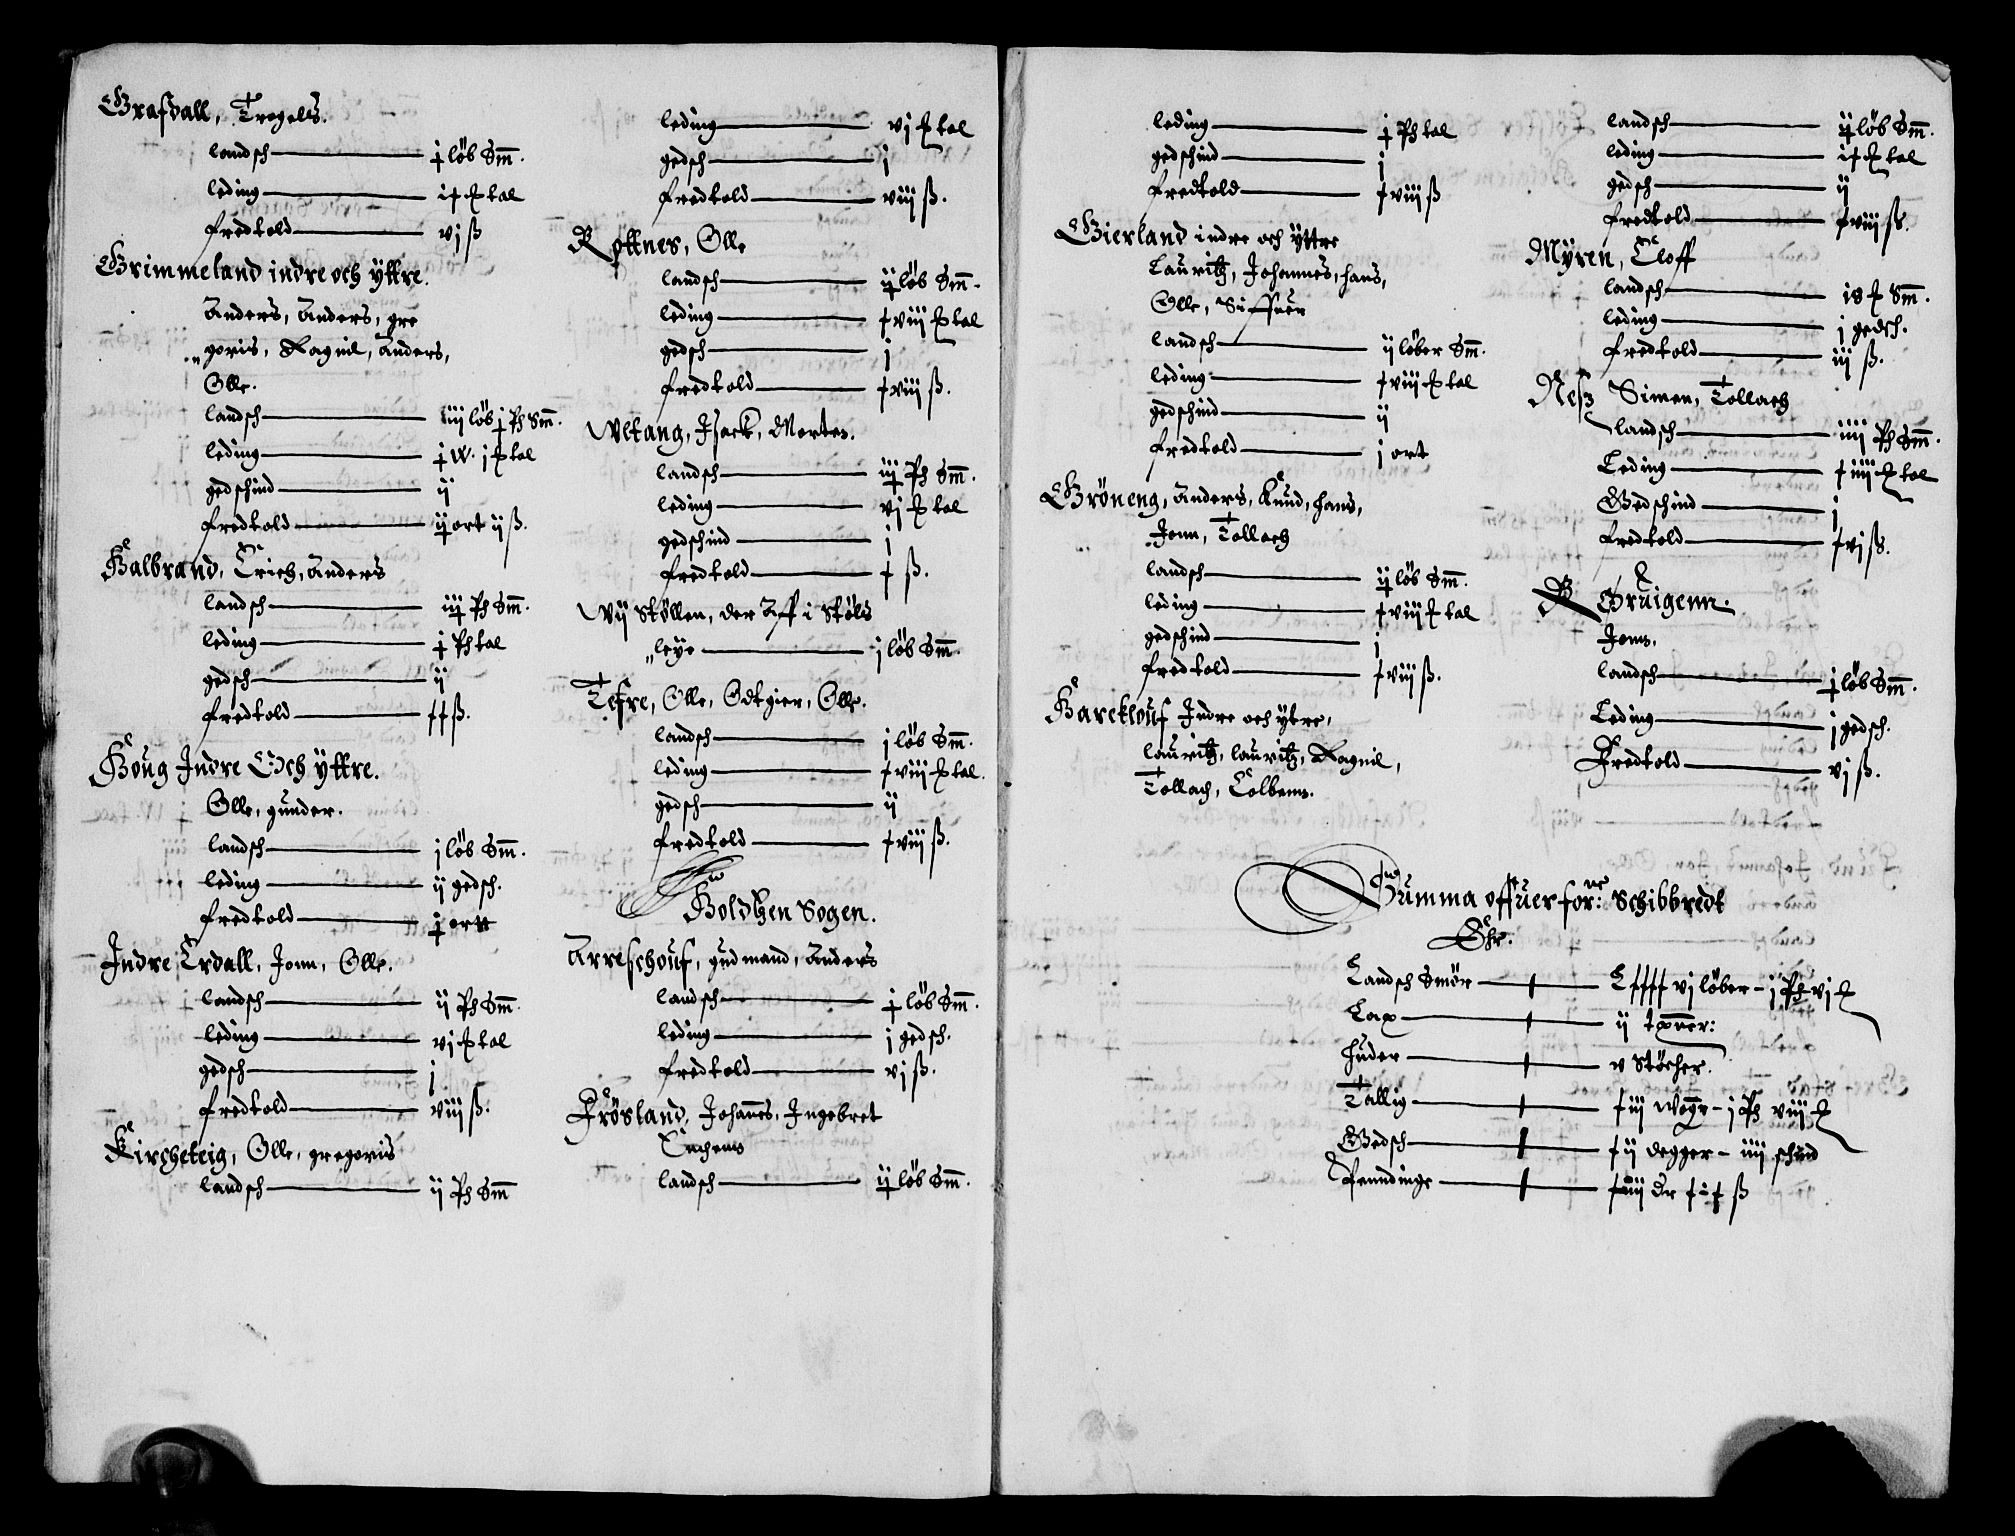 Grafdall, Trogels.
landsch — j löb Sm.
leding — if ℔ tal
fredtold — vj ß
Grimmeland indre och yttre.
Anders, Anders, gre
goris, Ragnil, Anders,
Olle.
landsch — iiij löb j Pb Sm.
leding — j W. j ℔ tal
gedschind — ij
fredtold — ij ort ij ß.
Halbrand, Erich, Anders
landsch — iij Pb Sm.
leding — j Pb tal
gedsch — ij
fredtold — ff ß.
Houg Indre Och yttre.
Olle, gunder.
landsch — j löb Sm.
leding — ij gedsch.
fredtold — j ortt
Indre Erdall, Jonn, Olle.
landsch — ij Pb Sm.
leding — vj ℔ tal
gedsch — j
fredtold — viij ß.
Kircheteig, Olle, gregorius
landsch — ij Pb Sm
leding — vj ℔ tal
gedsch — j
fredtold — viij ß.
Rottnes, Olle
landsch — ij löb Sm.
leding — fviij ℔ tal
gedsch — j
fredtold — fviij ß.
Wefang, Isack, Morten.
landsch — iij Pb Sm.
leding — vj ℔ tal
gedschind — j
fredtold — f ß.
Wij Støllen, der Aff i Støls
leye — j löb Sm.
Tefre, Olle, Odtgier, Olle.
landsch — j löb Sm.
leding — fviij ℔ tal.
gedsch — ij
fredtold — fviij ß.
Holdhen Sogen.
Arreschouf, gudmand, Anders
landsch — j löb Sm.
leding — j gedsch.
fredtold — vj ß.
Frösland, Johannes, Ingebret
Enchens
landsch — ij löb Sm.
leding — j Pb tal
gedschind — j
fredtold — fviij ß
Gierland indre och yttre
Lauritz, Johannes, hans,
Olle, Siffuer
landsch — ij löber Sm.
leding — fviij ℔ tal
gedschind — ij
fredtold — j ort
Gröneng, Anders, Knud, hans,
Jonn, Tollach
landsch — ij löb Sm.
leding — fviij ℔ tal
gedschind — j
fredtold — fviij ß.
Hareklouf Indre och ytre,
lauritz, lauritz, Ragnil,
Tollach, Colbens.
landsch — ij löb Sm.
leding — if ℔ tal
gedsch — ij
fredtold — fviij ß.
Myren, Eloff
landsch — is ℔ Sm.
leding — j gedsch.
fredtold — iij ß.
Neß Simen, Tollach
landsch — iiij Pb Sm.
Leding — fiiij ℔ tal
Gedschind — j
fredtold — fvj ß.
Gruigenn.
Jens.
landsch — j löb Sm.
Leding — j gedsch.
Fredtold — vj ß.
Summa offuer forne Schibbredt
Ehr.
Landsch Smör — Lffff vj löber – j Pb vj ℔
Lax — ij
huder — v Störher.
Tallig — fiij Woger – j Pb viij ℔
Gedsch — fij degger – iiij schind
Penndinge — dr ß